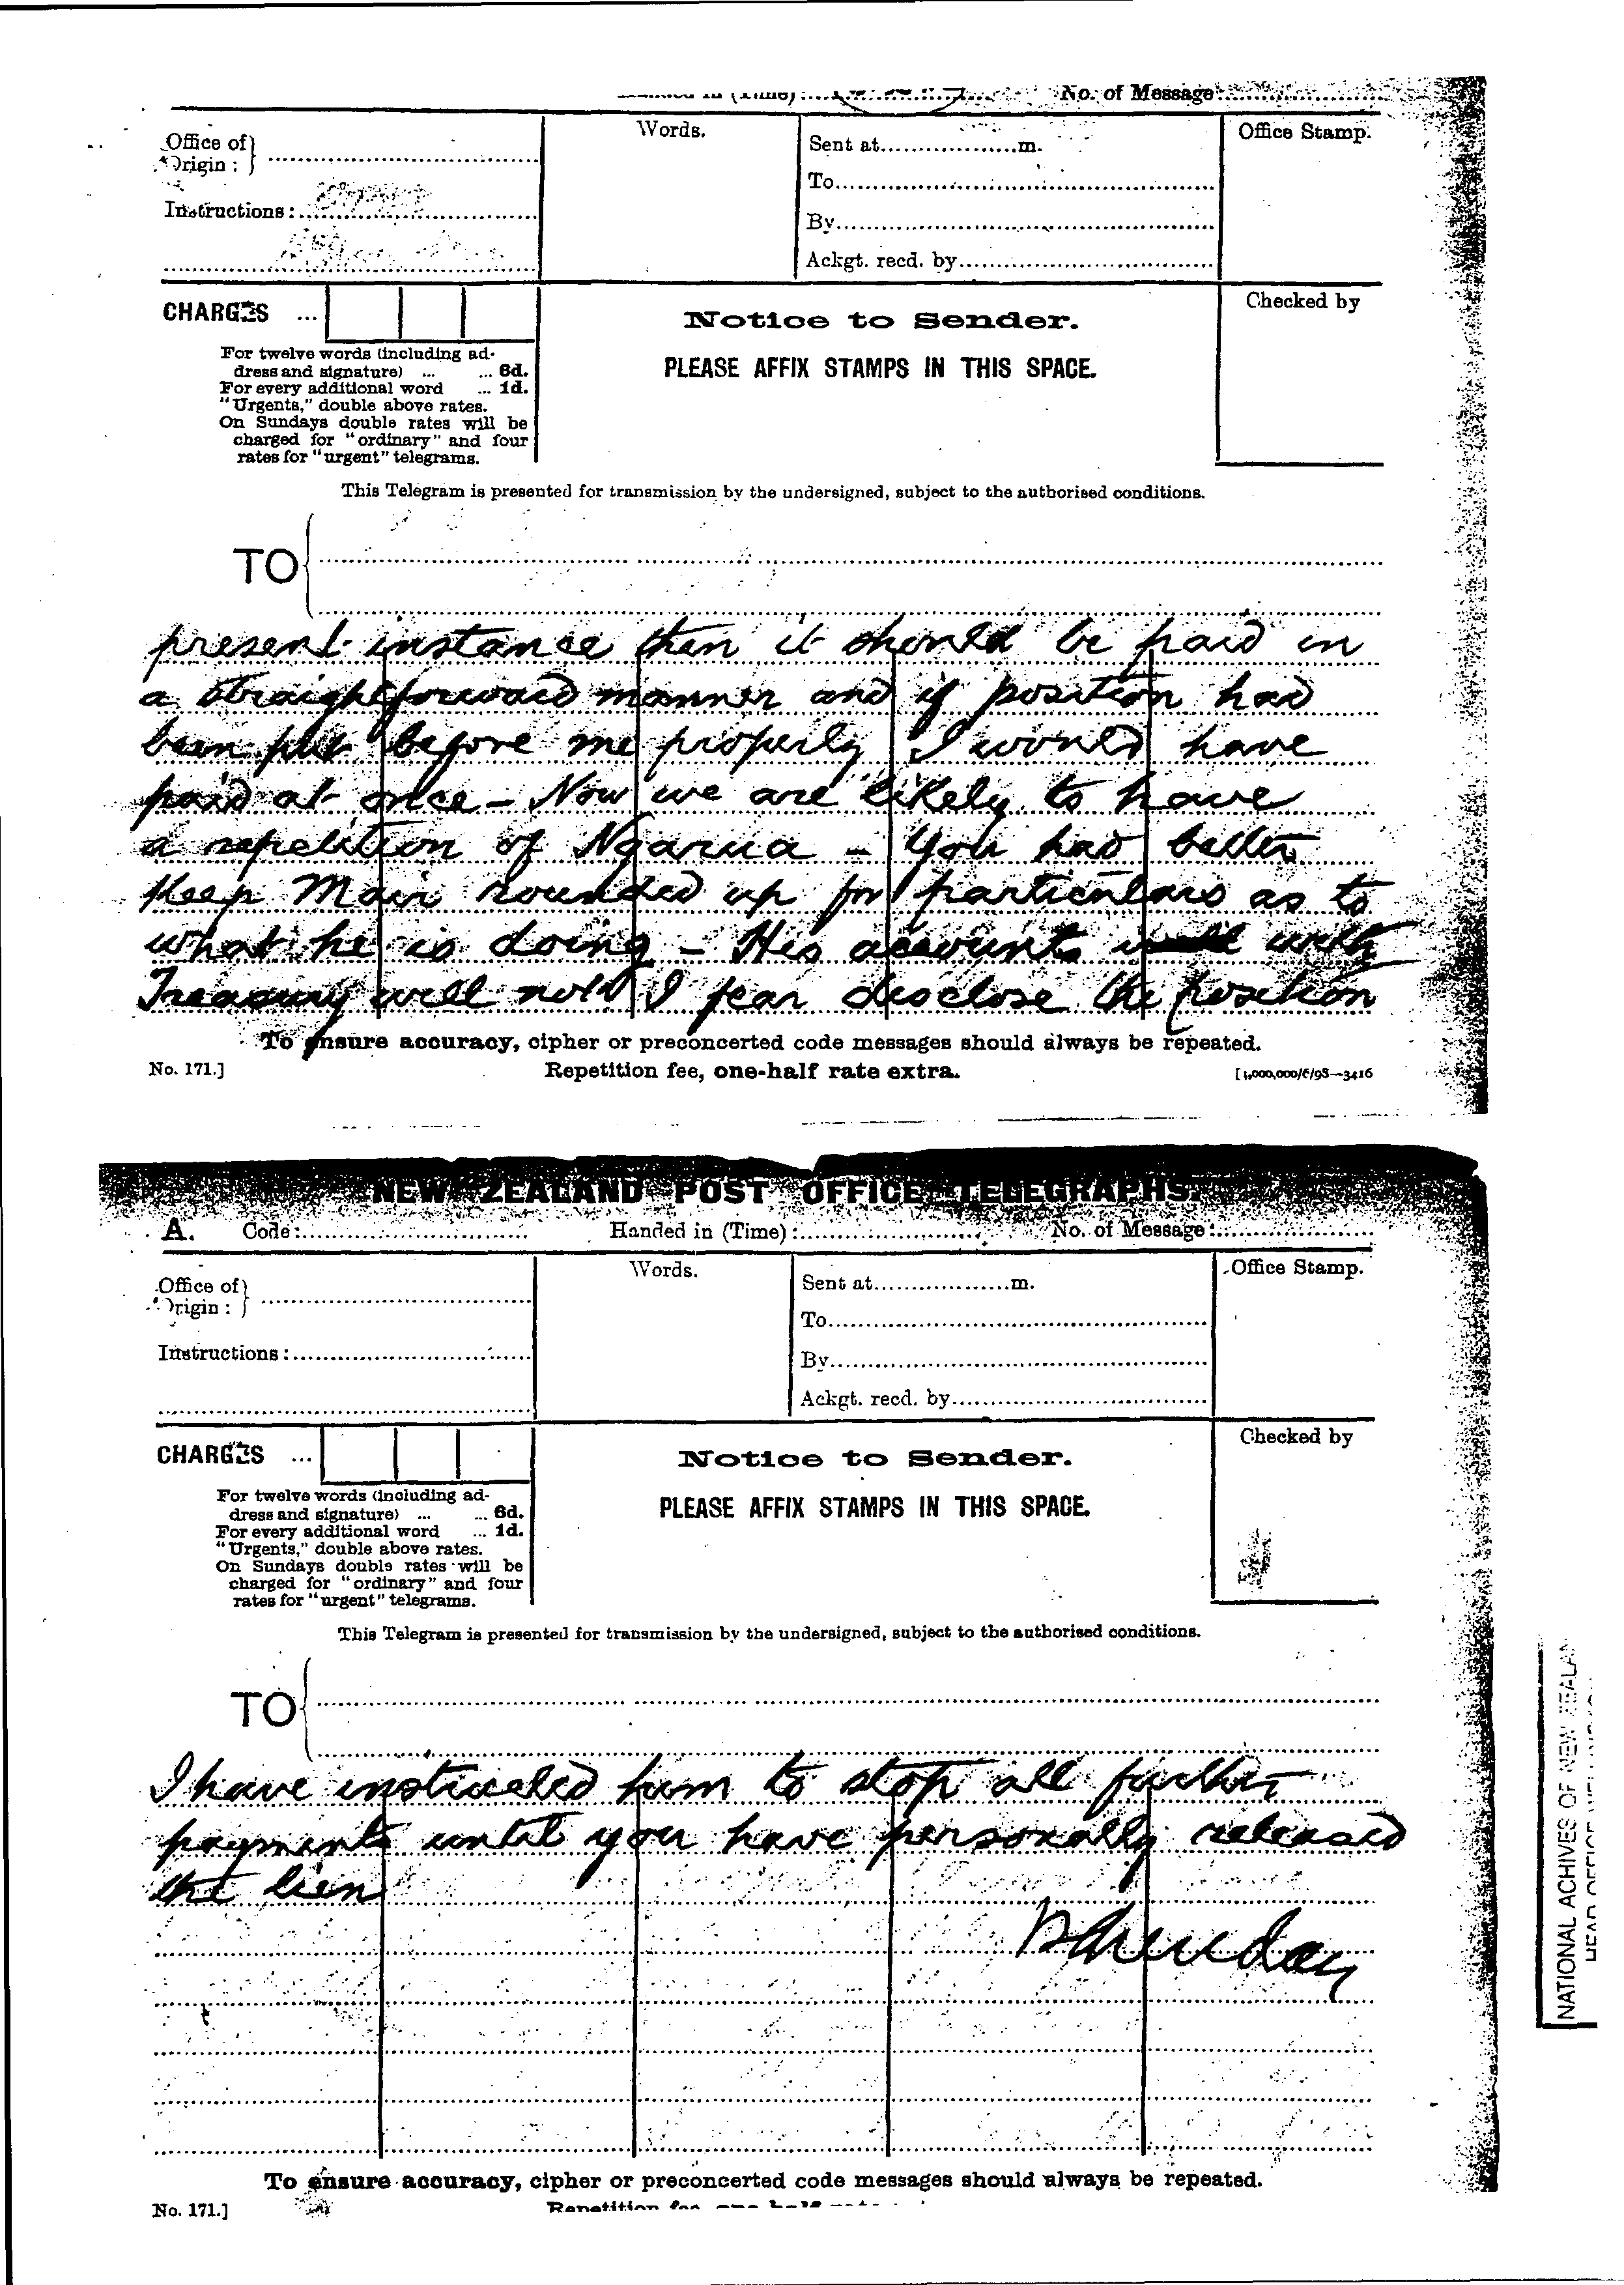 (Time): No. of Message:
Office of Origin:
Words.
Sent at m.
Office Stamp.
To
Instructions:
By
Ackgt. recd. by
CHARGES ...
Notice to Sender.
Checked by
For twelve words (including ad-
dress and signature) ... ... 6d.
PLEASE AFFIX STAMPS IN THIS SPACE.
For every additional word ... 1d.
"Urgents," double above rates.
On Sundays double rates will be
charged for "ordinary" and four
rates for "urgent" telegrams.
This Telegram is presented for transmission by the undersigned, subject to the authorised conditions.
TO
present instance then it should be paid in
a straightforward manner and if position had
been put before me properly I would have
paid at once - Now we are likely to have
a repetition of Ngarua - You had better
keep Mair rounded up for particulars as to
what he is doing - His accounts with
Treasury will not I fear disclose the position
To ensure accuracy, cipher or preconcerted code messages should always be repeated.
No. 171.] Repetition fee, one-half rate extra. [1,000,000/6/98—3416
NEW ZEALAND POST OFFICE TELEGRAPHS.
A. Code: Handed in (Time): No. of Message:
Office of Origin:
Words.
Sent at m.
Office Stamp.
To
Instructions:
By
Ackgt. recd. by
CHARGES ...
Notice to Sender.
Checked by
For twelve words (including ad-
dress and signature) ... ... 6d.
PLEASE AFFIX STAMPS IN THIS SPACE.
For every additional word ... 1d.
"Urgents," double above rates.
On Sundays double rates will be
charged for "ordinary" and four
rates for "urgent" telegrams.
This Telegram is presented for transmission by the undersigned, subject to the authorised conditions.
TO
I have instructed him to stop all further
payments until you have personally released
the lien
To ensure accuracy, cipher or preconcerted code messages should always be repeated.
No. 171.] Repetition fee, one-half
NATIONAL ACHIVES OF NEW ZEALAN